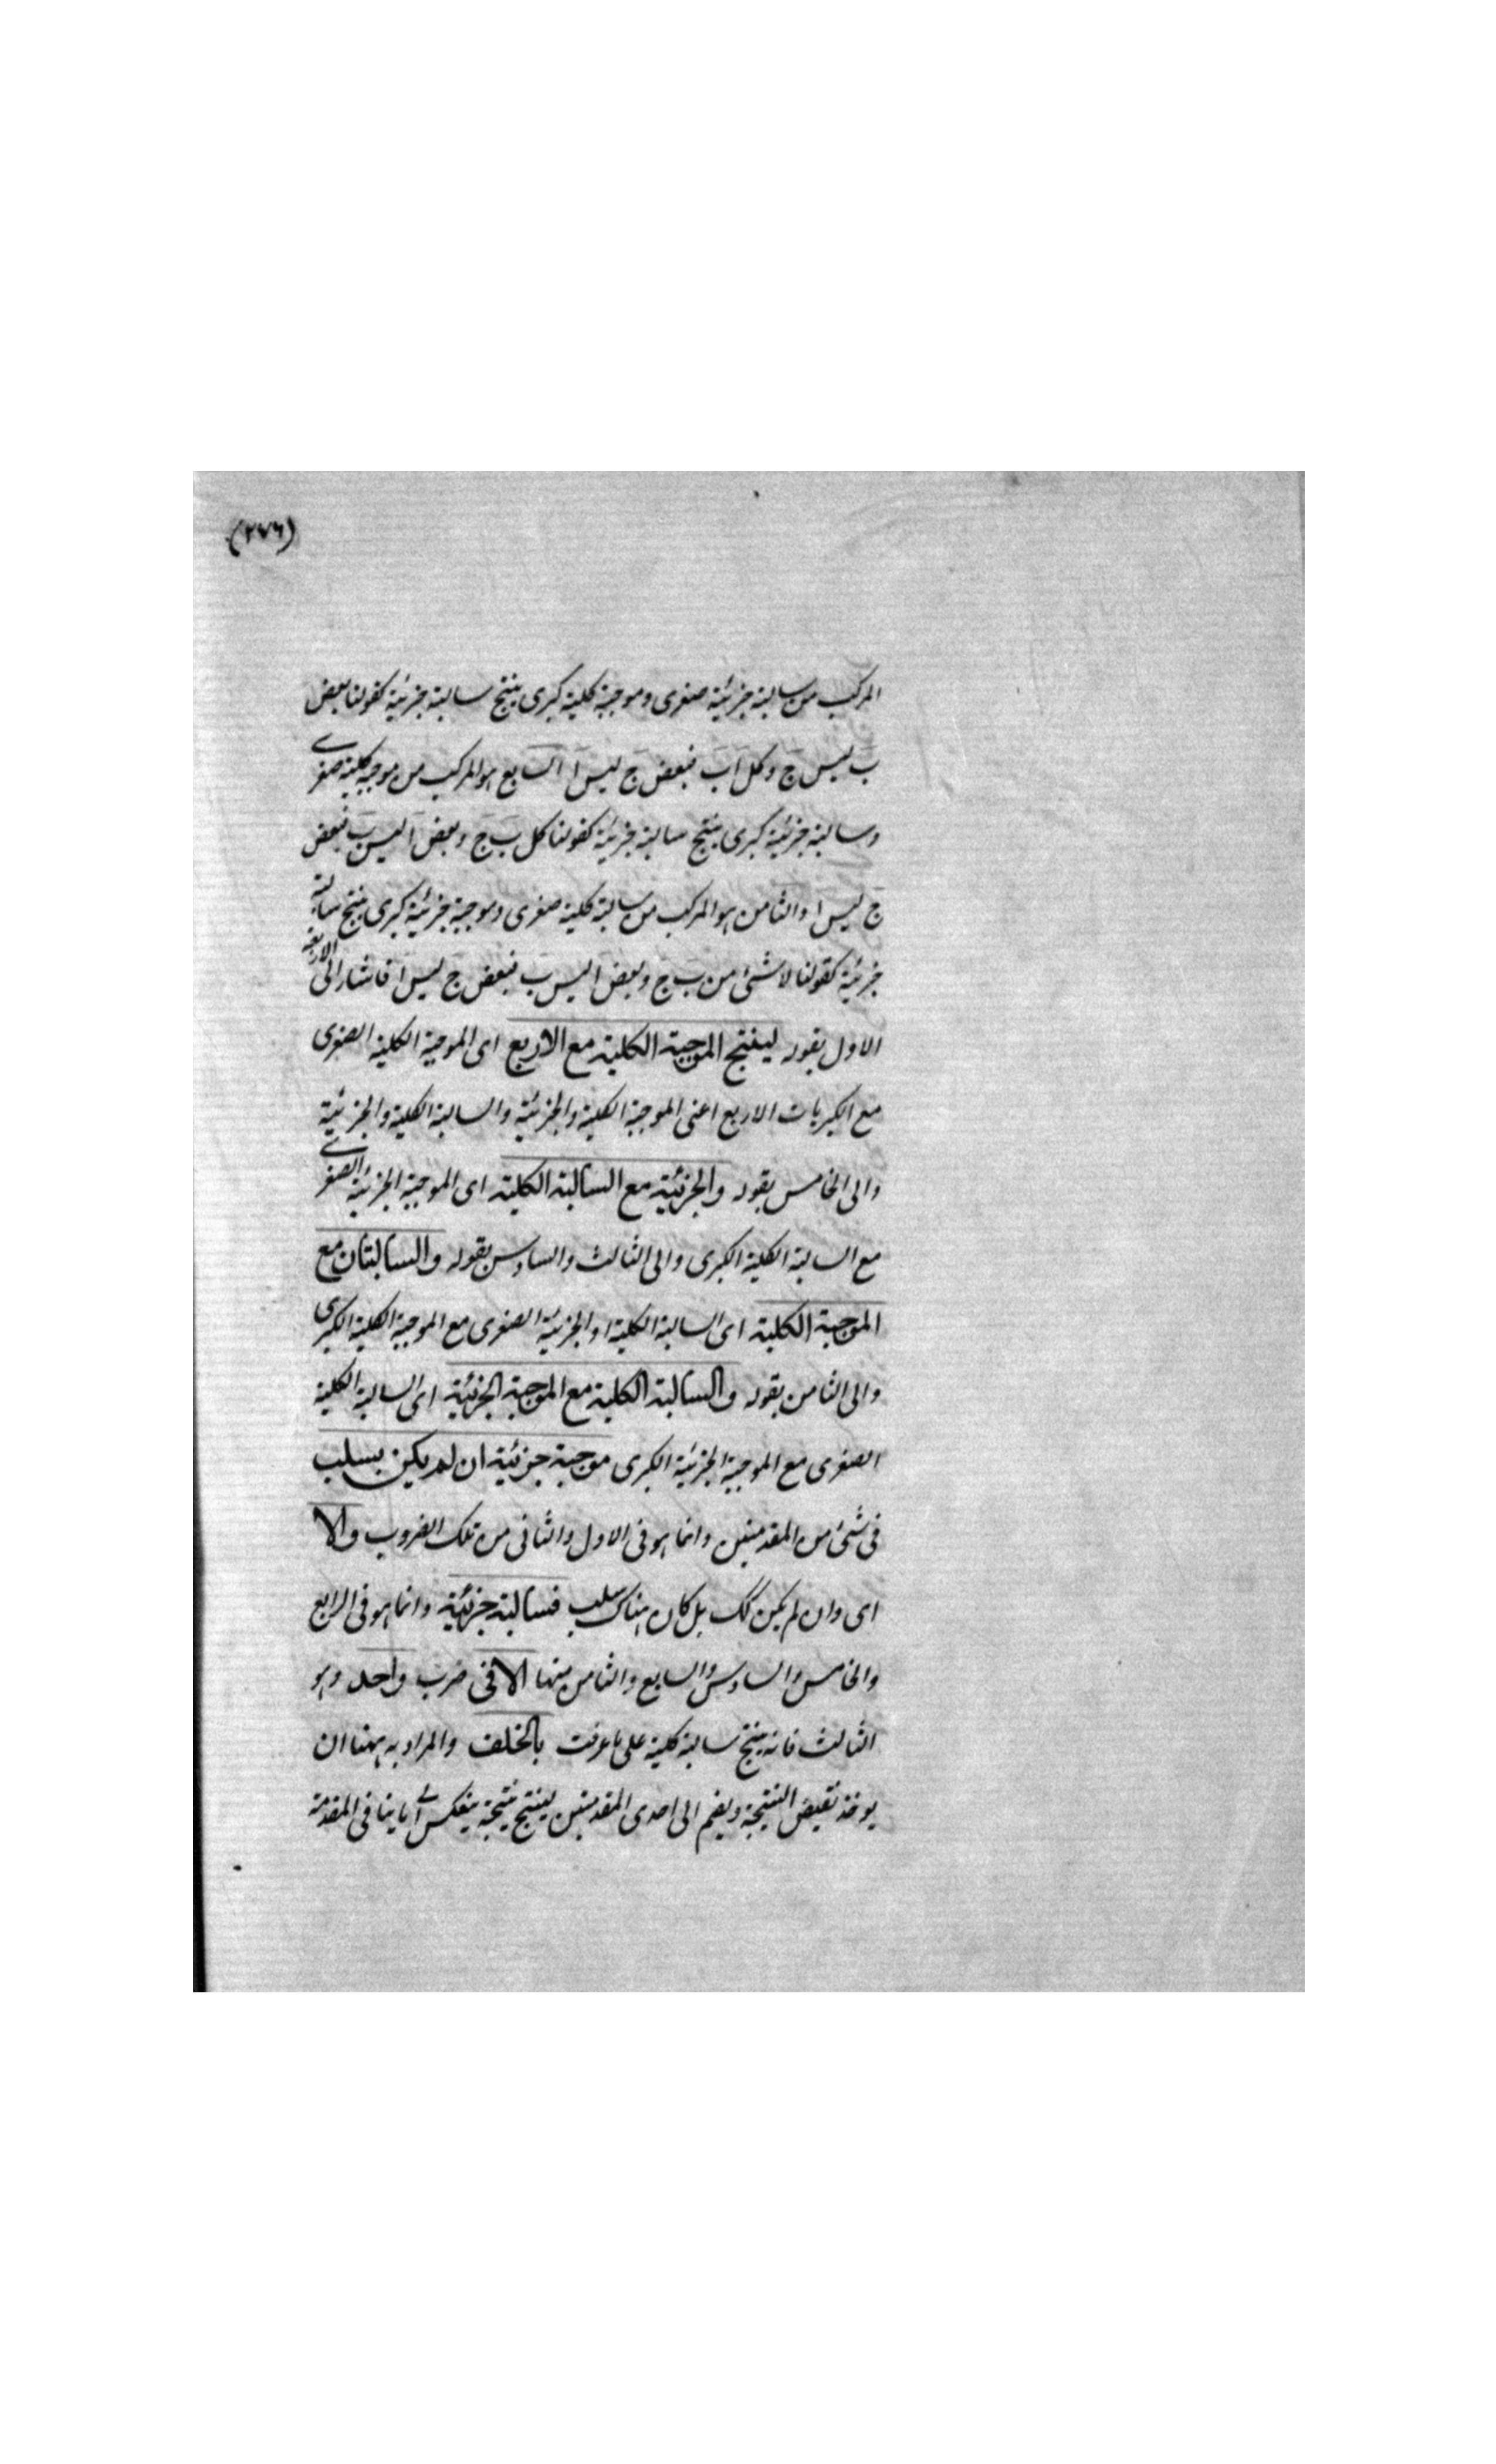 (٢٧٦)
المركب من سالبة جزئية صغرى وموجبة كلية كبرى ينتج سالبة جزئية كقولنا بعض
ب ليس ج وكل ا ب فبعض ج ليس ا السابع هو المركب من موجبة كلية صغرے
وسالبة جزئية كبرى ينتج سالبة جزئية كقولنا كل ب ج وبعض ا ليس ب فبعض
ج ليس ا والثامن هو المركب من سالبة كلية صغرى وموجبة جزئية كبرى ينتج سالبة
جزئية كقولنا لا شئ من ب ج وبعض ا ليس ب فبعض ج ليس ا فاشار الى الاربعة
الاول بقوله لينتج الموجبة الكلية مع الاربع اى الموجبة الكلية الصغرى
مع الكبريات الاربع اعنى الموجبة الكلية والجزئية والسالبة الكلية والجزئية
والى الخامس بقوله والجزئية مع السالبة الكلية اى الموجبة الجزئية الصغرے
مع السالبة الكلية الكبرى والى الثالث والسادس بقوله والسالبتان مع
الموجبة الكلية اى السالبة الكلية او الجزئية الصغرى مع الموجبة الكلية الكبرى
والى الثامن بقوله والسالبة الكلية مع الموجبة الجزئية اى السالبة الكلية
الصغرى مع الموجبة الجزئية الكبرى موجبة جزئية ان لم يكن بسلب
فى شئ من المقدمتين وانما هو فى الاول والثانى من تلك الضروب والا
اى وان لم يكن كك بل كان هناك سلب فسالبة جزئية وانما هو فى الرابع
والخامس والسادس والسابع والثامن منها الا فى ضرب واحد وهو
الثالث فانه ينتج سالبة كلية على ما عرفت بالخلف والمراد به ههنا ان
يوخذ نقيض النتيجة ويضم الى احدى المقدمتين لينتج نتيجة ينعكس الے ما ينافى المقدمة